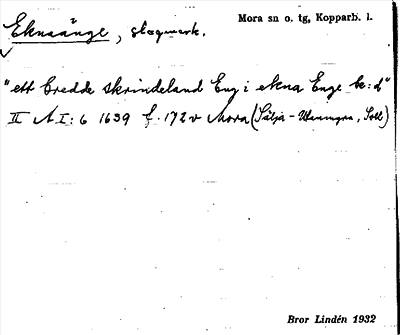 Eknaänge, slogmark. Mora sn o. tg, Kopparb. l.
"ett Bredde skrindeland Eng i ekna Enge be:d"
II A.I: 6 1639 f. 172v Mora (Sälja - , Soll)
Bror Lindén 1932